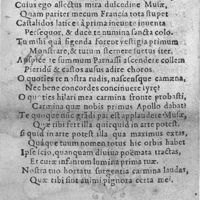 Cuius ego allectus mira dulcedine Musæ,
Quam pariter mecum Francia tota stupet
Castalidos latices à prima ineunte iuuenta
Persequor, & duce te numina sancta colo.
Tu mihi quà figenda foret vestigia primum
Monstrare, & tutum iter
Aspice te summum Parnassi ascendere collem
Pieridū & castos ausus adire choros.
O quoties te nostra rudis, nascensque camœna,
Nec bene concordes concinuere lyræ!
O quoties hilari mea carmina fronte probasti,
Carmina quæ nobis primus Apollo dabat!
Te quoque nūc gradi pat est applaudere Musæ,
Quæ tibi fert illa quicquid in arte potest.
Si quid in arte potest illa qua maximus extas,
Quaque tuum nomen totus hic orbis habet
Ipse scio, quanquam diuina poëmata tractas,
Et curæ infantum lumina prima tuæ.
Nostra tuo hortatu surgentia carmina laudas,
Quæ tibi sint animi pignora certa mei.